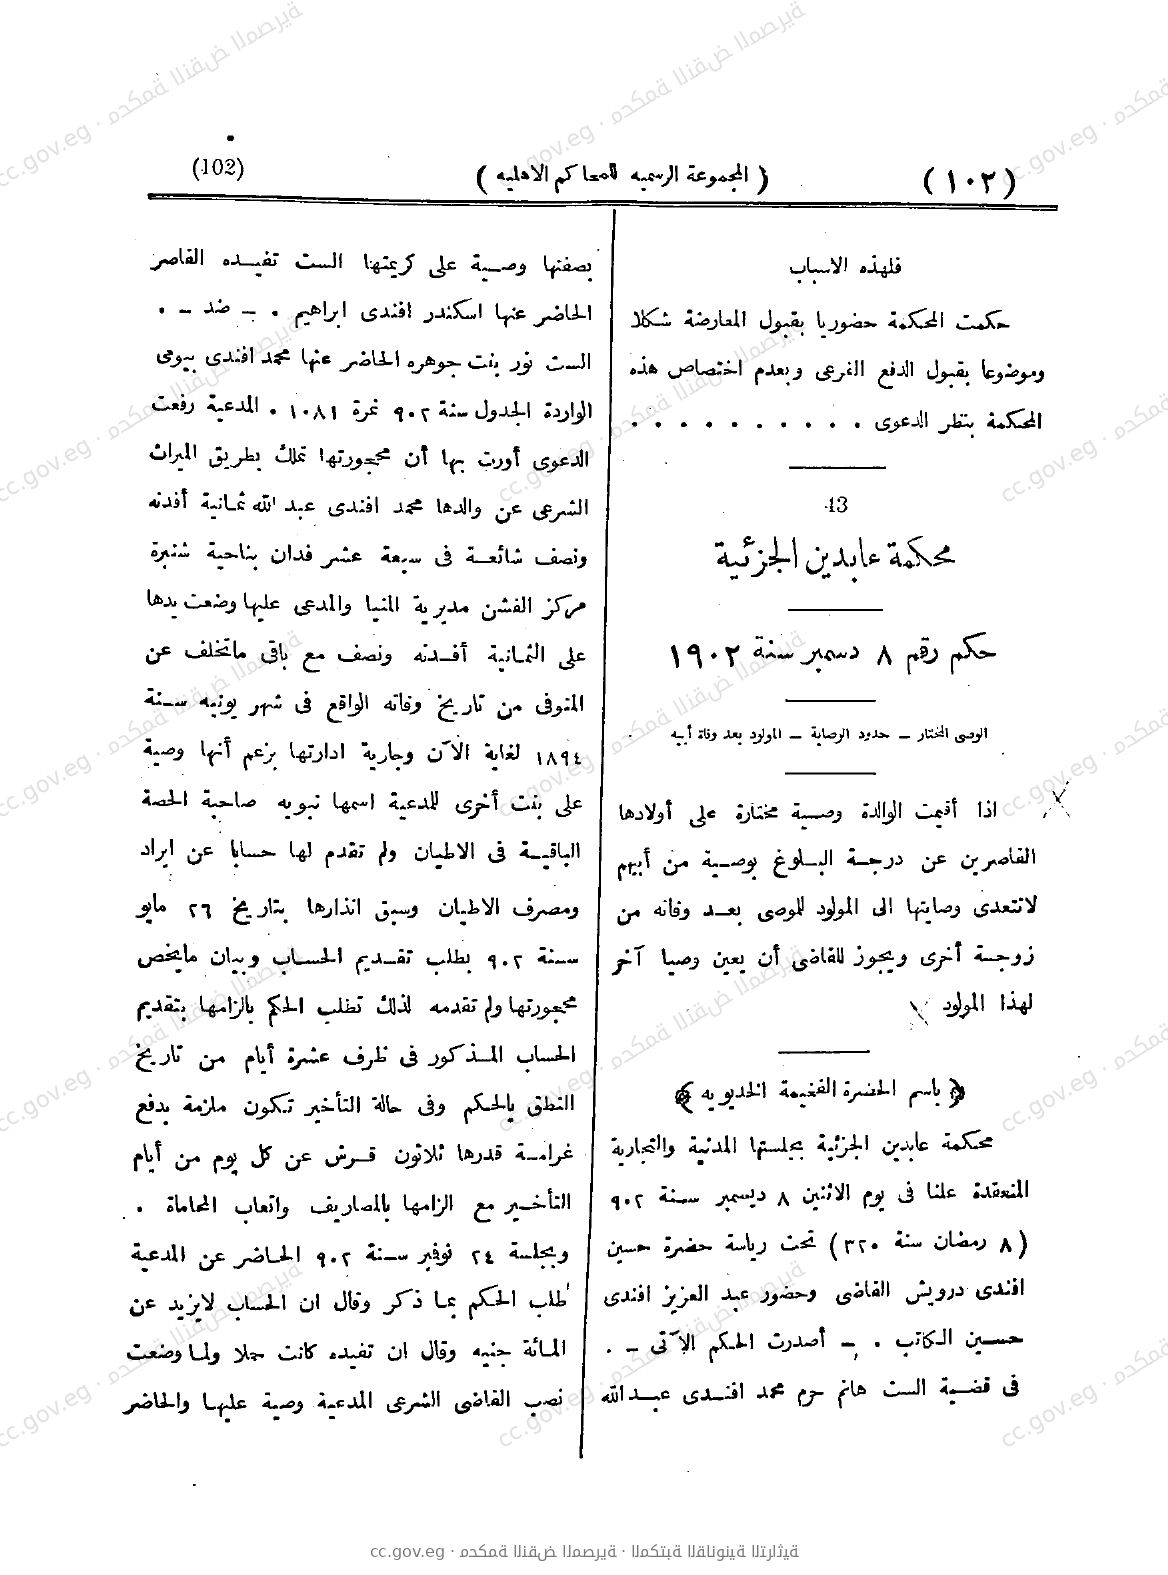 (١٠٢)
( المجموعة الرسميه للمحاكم الاهليه )
(102)
فلهذه الاسباب
حكمت المحكمة حضوريا بقبول المعارضة شكلا
وموضوعا بقبول الدفع الفرعى وبعدم اختصاص هذه
المحكمة بنظر الدعوى . . . . . . . . . .
43
محكمة عابدين الجزئية
حكم رقم ٨ دسمبر سنة ١٩٠٢
الوصى المختار – حدود الوصاية – المولود بعد وفاة أبيه
اذا أقيمت الوالدة وصية مختارة على أولادها
القاصرين عن درجة البلوغ بوصية من أبيهم
لاتتعدى وصايتها الى المولود للموصى بعد وفاته من
زوجة أخرى ويجوز للقاضى أن يعين وصيا آخر
لهذا المولود
﴿ باسم الحضرة الفخيمة الخديويه ﴾
محكمة عابدين الجزئية بجلستها المدنية والتجارية
المنعقدة علنا فى يوم الاثنين ٨ ديسمبر سنة ٩٠٢
(٨ رمضان سنة ٣٢٠) تحت رياسة حضرة حسين
افندى درويش القاضى وحضور عبد العزيز افندى
حسين الكاتب . – أصدرت الحكم الآتى – .
فى قضية الست هانم حرم محمد افندى عبد الله
بصفتها وصية على كريمتها الست تفيده القاصر
الحاضر عنها اسكندر افندى ابراهيم . – ضد – .
الست نور بنت جوهره الحاضر عنها محمد افندى بيومى
الواردة الجدول سنة ٩٠٢ نمرة ١٠٨١ . المدعية رفعت
الدعوى أورت بها أن محجورتها تملك بطريق الميراث
الشرعى عن والدها محمد افندى عبد الله ثمانية أفدنه
ونصف شائعة فى سبعة عشر فدان بناحية شنبرة
مركز الفشن مديرية المنيا والمدعى عليها وضعت يدها
على الثمانية أفدنه ونصف مع باقى ماتخلف عن
المتوفى من تاريخ وفاته الواقع فى شهر يونيه سنة
١٨٩٤ لغاية الآن وجارية ادارتها بزعم أنها وصية
على بنت أخرى للمدعية اسمها نبويه صاحبة الحصة
الباقية فى الاطيان ولم تقدم لها حسابا عن ايراد
ومصرف الاطيان وسبق انذارها بتاريخ ٢٦ مايو
سنة ٩٠٢ بطلب تقديم الحساب وبيان مايخص
محجورتها ولم تقدمه لذلك تطلب الحكم بالزامها بتقديم
الحساب المذكور فى ظرف عشرة أيام من تاريخ
النطق بالحكم وفى حالة التأخير تكون ملزمة بدفع
غرامة قدرها ثلاثون قرش عن كل يوم من أيام
التأخير مع الزامها بالمصاريف واتعاب المحاماة .
وبجلسة ٢٤ نوفمبر سنة ٩٠٢ الحاضر عن المدعية
طلب الحكم بما ذكر وقال ان الحساب لايزيد عن
المائة جنيه وقال ان تفيده كانت حملا ولما وضعت
نصب القاضى الشرعى المدعية وصية عليها والحاضر
cc.gov.eg · محكمة النقض المصرية · المكتبة القانونية التراثية